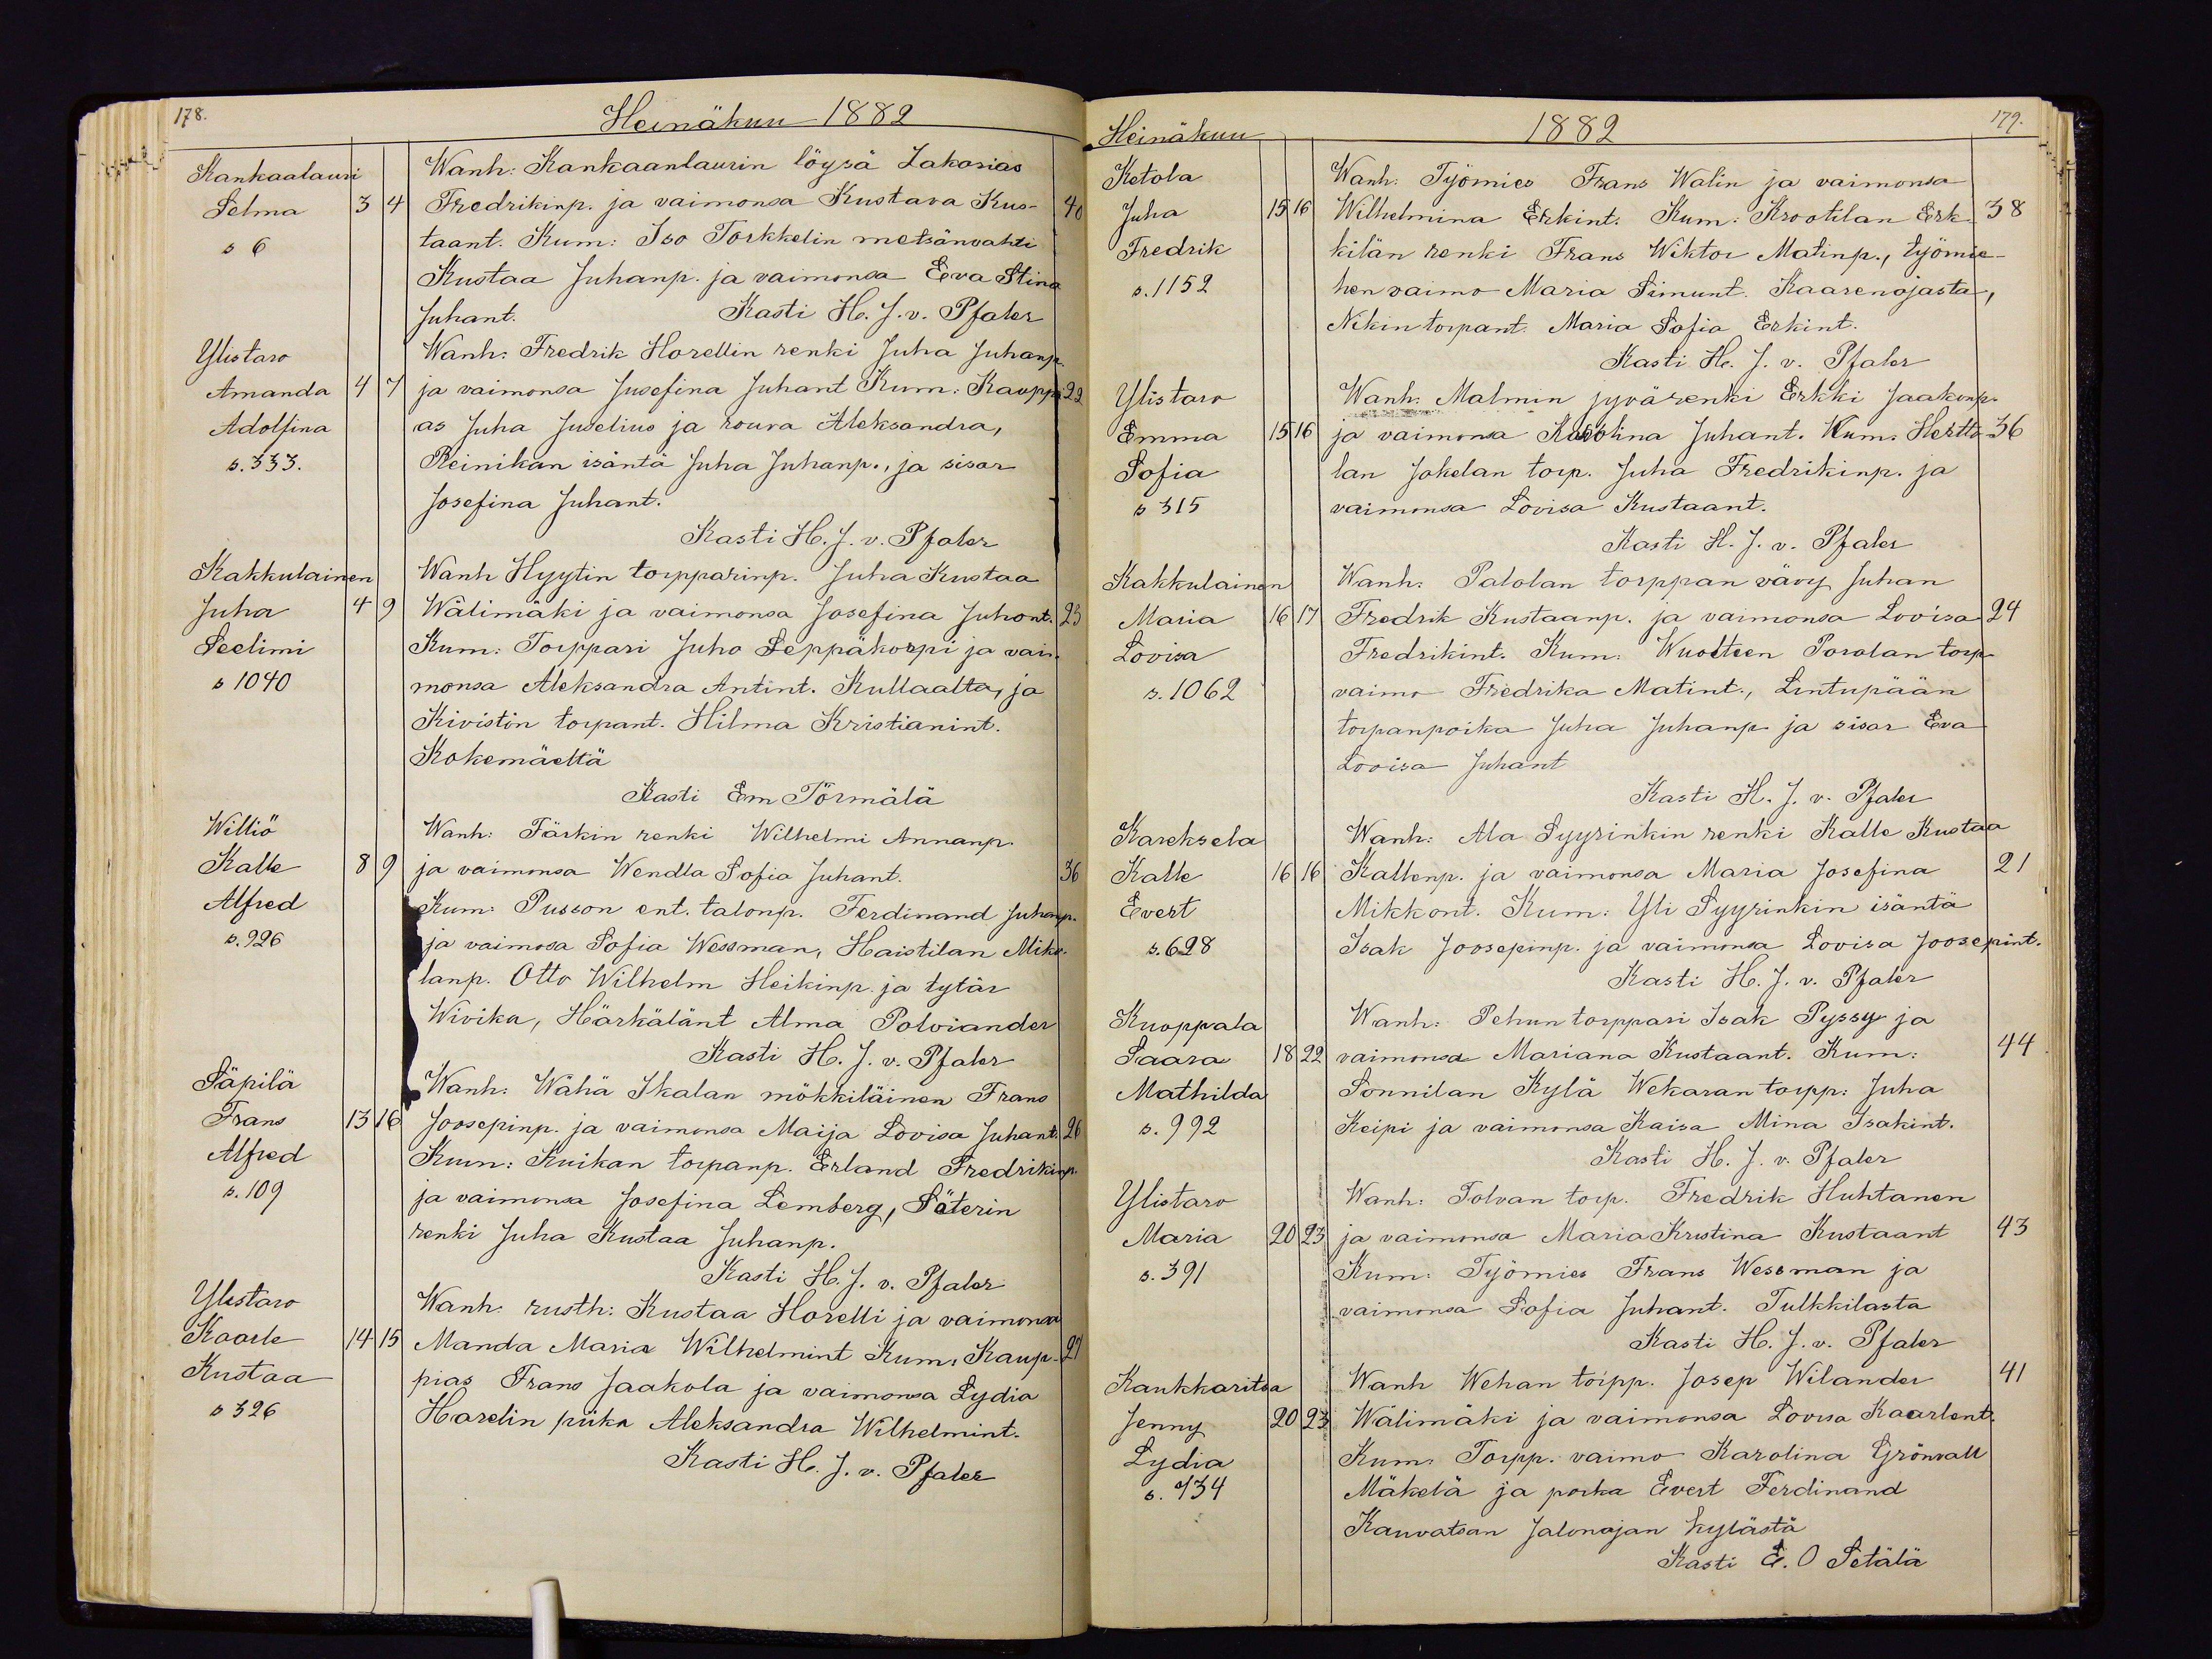 178.
Heinäkuu 1882
Kankaalauri Wanh: Kankaanlaurin löysä Sakarias
Selma 3 4 Fredrikinp. ja vaimonsa Kustava Kus- 40
s 6 taant. Kum: Iso Torkkelin metsänvahti
Kustaa Juhanp. ja vaimonsa Eva Stina
Juhant. Kasti H. J. v. Pfaler
Ylistaro Wanh: Fredrik Horellin renki Juha Juhanp.
Amanda 4 7 ja vaimonsa Josefina Juhant Kum: Kauppi 22
Adolfina as Juha Juselius ja rouva Aleksandra,
s. 333. Reinikan isäntä Juha Juhanp., ja sisar
Josefina Juhant.
Kasti H. J. v. Pfaler
Kakkulainen Wanh Hyytin torpparinp. Juha Kustaa
Juha 4 9 Wälimäki ja vaimonsa Josefina Juhont. 23
Seelimi Kum: Torppari Juho Leppäkorpi ja vai-
s 1040 monsa Aleksandra Antint. Kullaalta, ja
Kivistön torpant. Hilma Kristianint.
Kokemäeltä
Kasti Em Törmälä
Williö Wanh: Färkin renki Wilhelmi Annanp.
Kalle 8 9 ja vaimonsa Wendla Sofia Juhant. 36
Alfred Kum: Pusson ent. talonp. Ferdinand Juhanp.
s. 926 ja vaimosa Sofia Wessman, Haistilan Miko-
lanp. Otto Wilhelm Heikinp. ja tytär
Wivika, Härkälänt Alma Polviander
Kasti H. J. v. Pfaler
Säpilä Wanh: Wähä Ikalan mökkiläinen Frans
Frans 13 16 Joosepinp. ja vaimonsa Maija Lovisa Juhant. 26
Alfred Kum: Kuikan torpanp. Erland Fredrikinp.
s. 109 ja vaimonsa Josefina Lemberg, Säterin
renki Juha Kustaa Juhanp.
Kasti H. J. v. Pfaler
Ylistaro Wanh: rusth: Kustaa Horelli ja vaimonsa
Kaarle 14 15 Manda Maria Wilhelmint Kum: Kaup- 27
Kustaa pias Frans Jaakola ja vaimonsa Lydia
s 326 Harelin piika Aleksandra Wilhelmint.
Kasti H. J. v. Pfaler
179.
Heinäkuu 1882
Ketola Wanh: Työmies Frans Walin ja vaimonsa
Juha 15 16 Wilhelmina Erkint. Kum: Krootilan Erk- 38
Fredrik kilän renki Frans Wiktor Matinp., työmie-
s. 1152 hen vaimo Maria Simunt. Kaarenojasta,
Nikin torpant. Maria Sofia Erkint.
Kasti H. J. v. Pfaler
Ylistaro Wanh: Malmin jyvärenki Erkki Jaakonp.
Emma 15 16 ja vaimonsa Karolina Juhant. Kum. Hertto- 36
Sofia lan Jokelan torp. Juha Fredrikinp. ja
s 315 vaimonsa Lovisa Kustaant.
Kasti H. J. v. Pfaler
Kakkulainen Wanh: Palolan torppan vävy Juhan
Maria 16 17 Fredrik Kustaanp. ja vaimonsa Lovisa 24
Lovisa Fredrikint. Kum: Wuolteen Porolan torp
s. 1062 vaimo Fredrika Matint., Lintupään
torpanpoika Juha Juhanp ja sisar Eva
Lovisa Juhant
Kasti H. J. v. Pfaler
Kareksela Wanh: Ala Syyrinkin renki Kalle Kustaa
Kalle 16 16 Kallenp. ja vaimonsa Maria Josefina 21
Evert Mikkont. Kum: Yli Syyrinkin isäntä
s. 628 Isak Joosepinp. ja vaimonsa Lovisa Joosepint.
Kasti H. J. v. Pfaler
Kuoppala Wanh: Pehun torppari Isak Pyssy ja
Saara 18 22 vaimonsa Mariana Kustaant. Kum: 44
Mathilda Sonnilan Kylä Wekaran torpp: Juha
s. 992 Keipi ja vaimonsa Kaisa Mina Isakint.
Kasti H. J. v. Pfaler
Ylistaro Wanh: Tolvan torp. Fredrik Huhtanen
Maria 20 23 ja vaimonsa Maria Kristina Kustaant 43
s. 391 Kum: Työmies Frans Wessman ja
vaimonsa Sofia Juhant. Tulkkilasta
Kasti H. J. v. Pfaler
Kankkaritsa Wanh Wehan torpp. Josep Wilander 41
Jenny 20 23 Wälimäki ja vaimonsa Lovisa Kaarlent.
Lydia Kum: Torpp. vaimo Karolina Grönvall
s. 734 Mäkelä ja poika Evert Ferdinand
Kauvatsan Jalonojan kylästä
Kasti E. O Setälä